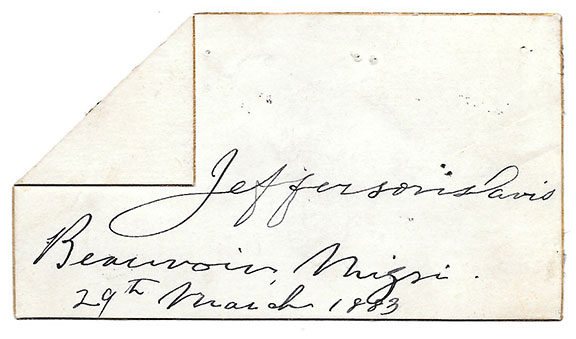 Jefferson Davis
Beauvoir Missi.
29th March 1883